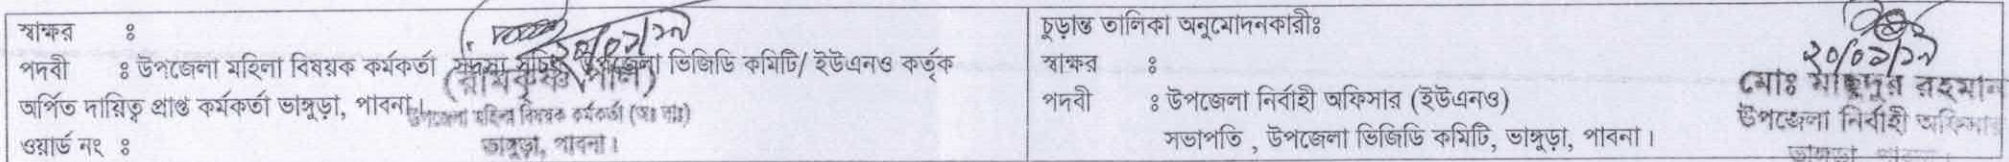 স্বাক্ষর ঃ
পদবী ঃ উপজেলা মহিলা বিষয়ক কর্মকর্তা সদস্য সচিব উপজেলা ভিজিডি কমিটি/ ইউএনও কর্তৃক
অর্পিত দায়িত্ব প্রাপ্ত কর্মকর্তা ভাঙ্গুড়া, পাবনা।
ওয়ার্ড নং ঃ
২০/০১/১৯
(রামকৃষ্ণ পাল)
উপজেলা মহিলা বিষয়ক কর্মকর্তা (অঃ দাঃ)
ভাঙ্গুড়া, পাবনা।
চুড়ান্ত তালিকা অনুমোদনকারীঃ
স্বাক্ষর ঃ
পদবী ঃ উপজেলা নির্বাহী অফিসার (ইউএনও)
সভাপতি , উপজেলা ভিজিডি কমিটি, ভাঙ্গুড়া, পাবনা।
২০/০১/১৯
মোঃ মাছুদুর রহমান
উপজেলা নির্বাহী অফিসার
ভাঙ্গুড়া, পাবনা।